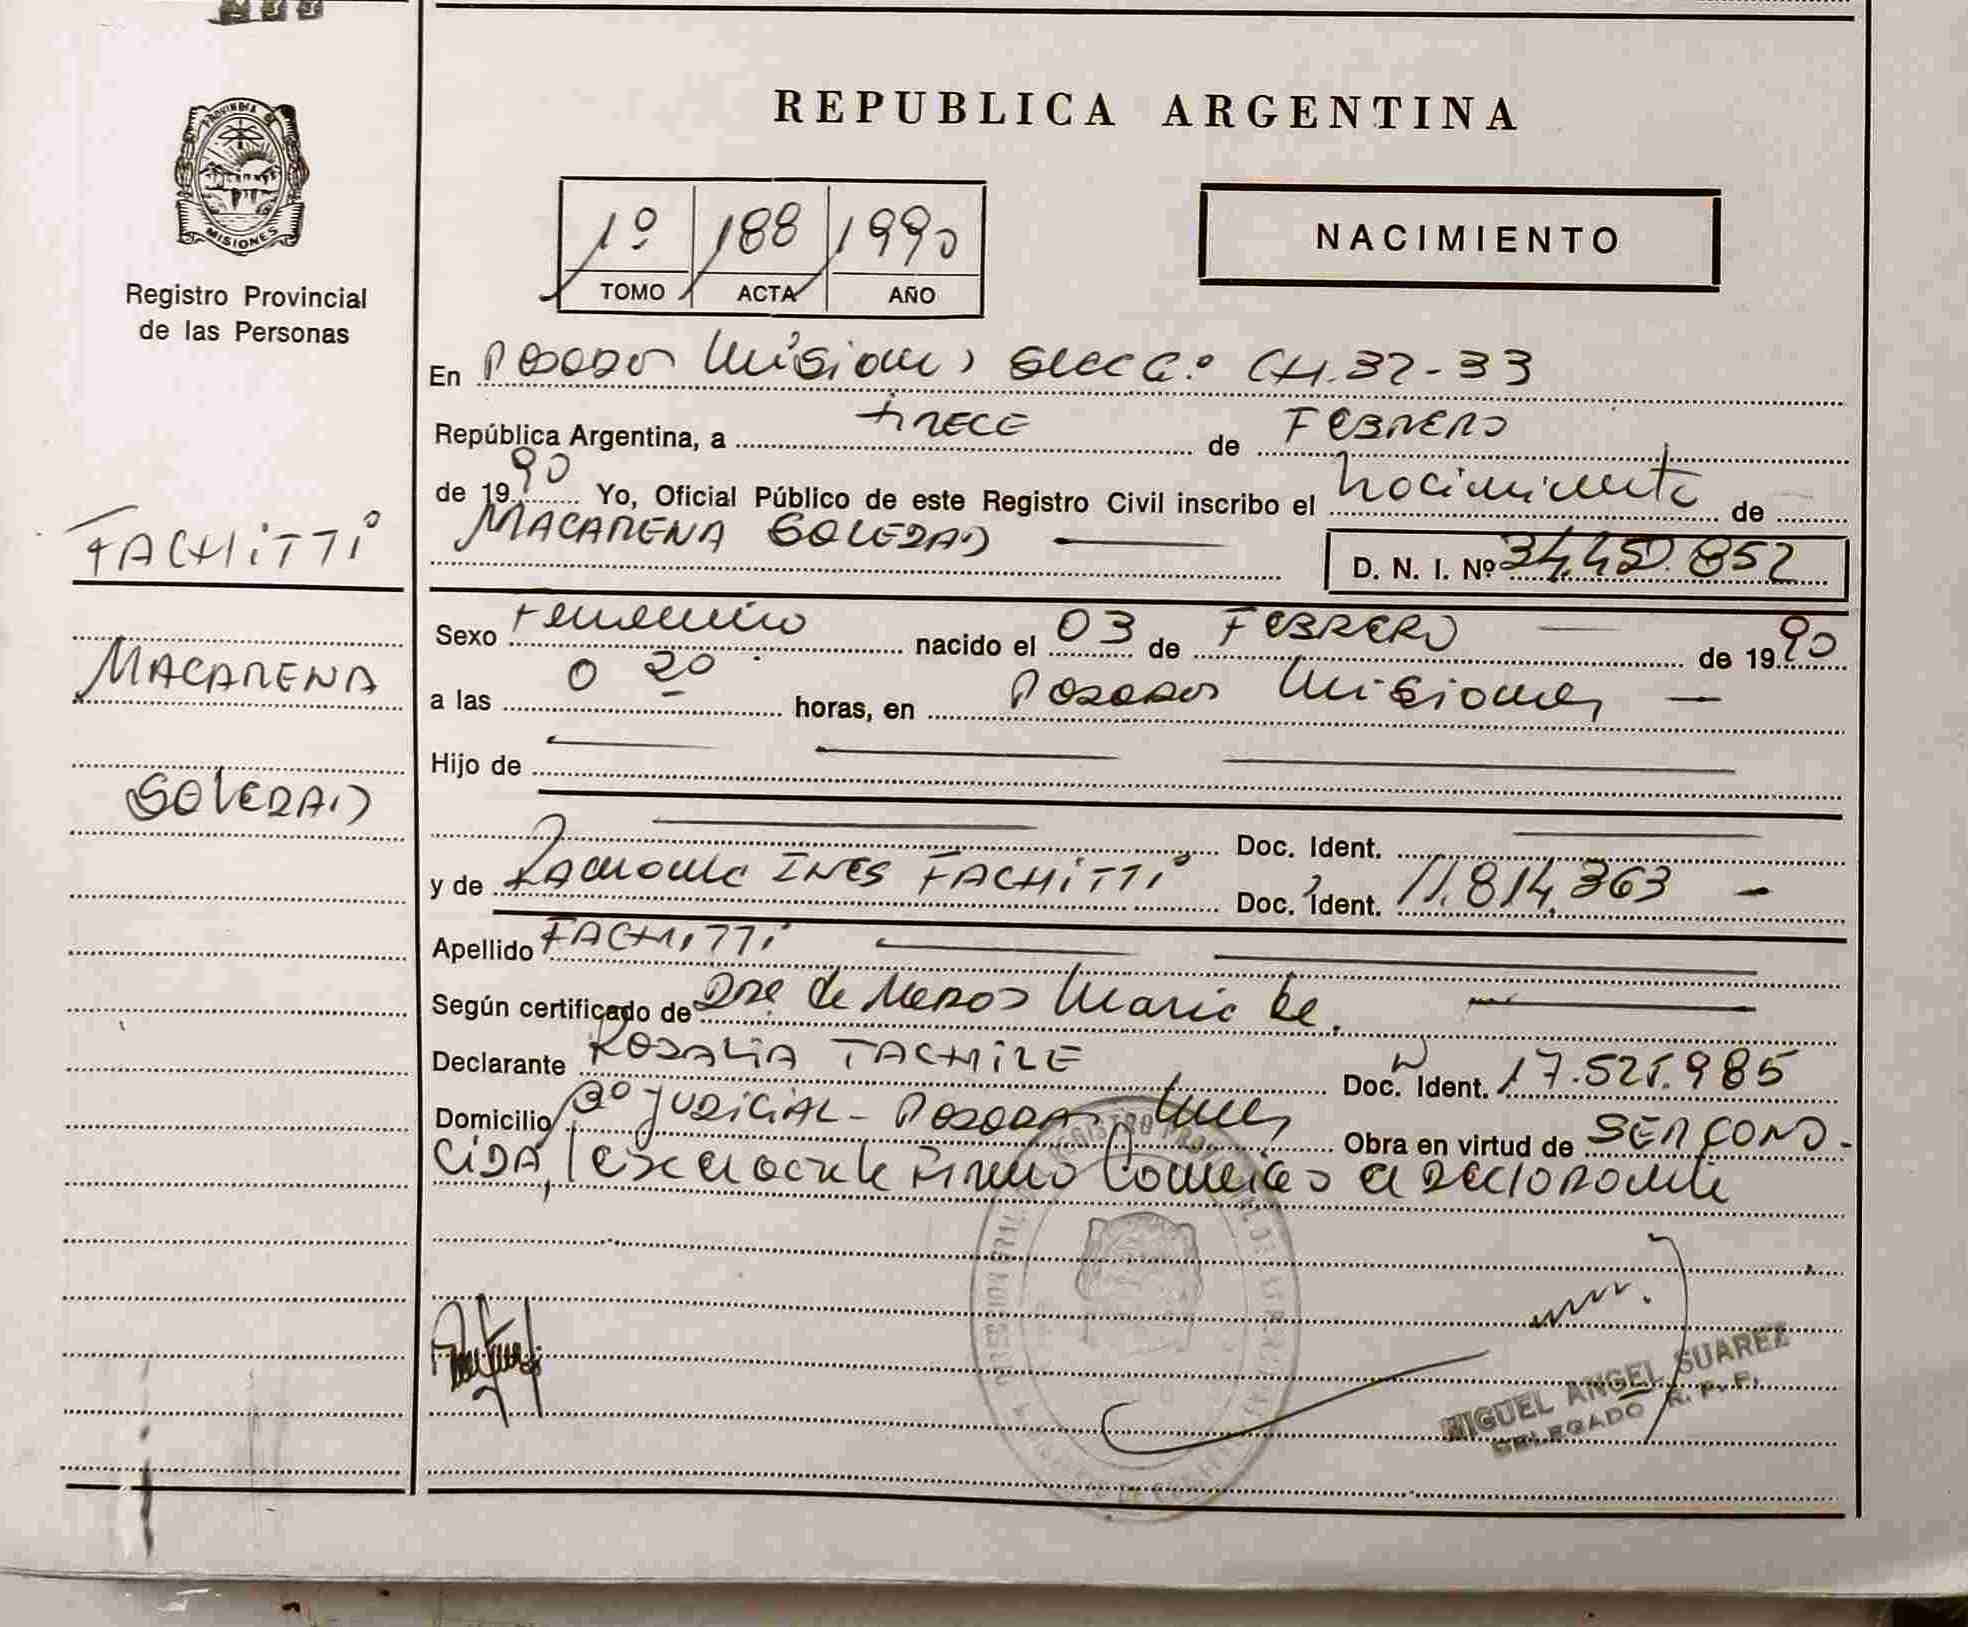 PROVINCIA DE
MISIONES
Registro Provincial
de las Personas
REPUBLICA ARGENTINA
1º 188 1990
TOMO ACTA AÑO
NACIMIENTO
En Posadas Misiones, Secc. CH. 32-33
República Argentina, a trece de FEBRERO
de 1990 Yo, Oficial Público de este Registro Civil inscribo el nacimiento de
MACARENA SOLEDAD D. N. I. Nº 34.450.852
FACHITTI
MACARENA
SOLEDAD
Sexo Femenino nacido el 03 de FEBRERO de 1990
a las 0 20 horas, en Posadas Misiones
Hijo de
Doc. Ident.
y de Ramona INES FACHITTI Doc. Ident. 11.814.363
Apellido FACHITTI
Según certificado de Dra de Meros Maria
Declarante ROSALIA Doc. Ident. 17.525.985
Domicilio Bº JUDICIAL - POSADAS Mnes Obra en virtud de SER CONO-
CIDA, Leída el acta la firma conmigo el declarante
MIGUEL ANGEL SUAREZ
DELEGADO R. P. P.